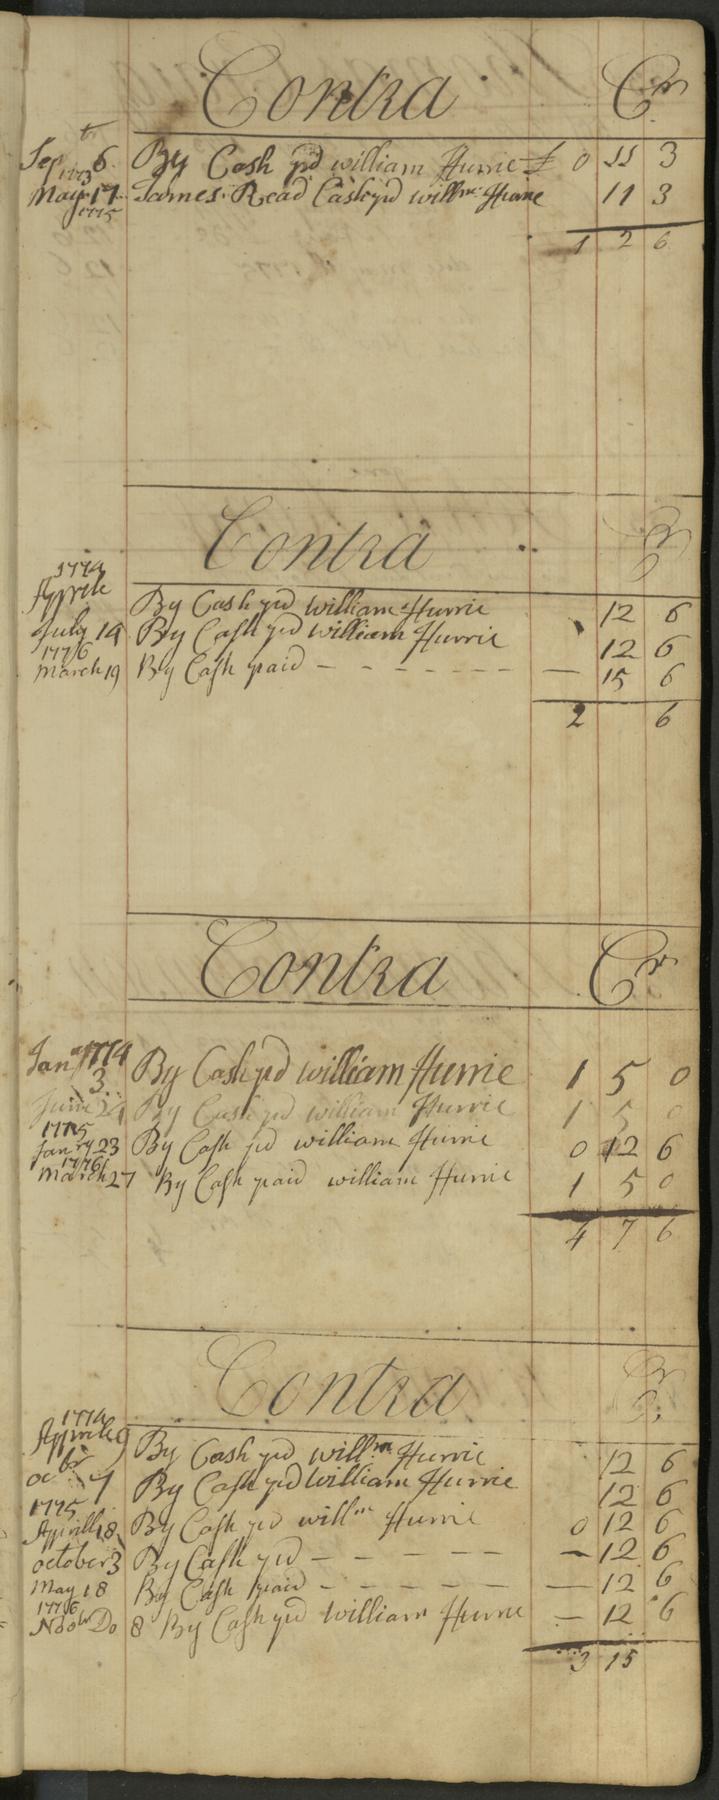 Contra Cr
Sepr 6th By Cash pd william Hurrie £ 0 11 3
1773
May 17 James Read Cash pd willm Hurrie 11 3
1775
1 2 6
Contra Cr
1774
Apprile By Cash pd william Hurrie 12 6
July 19 By Cash pd william Hurrie 12 6
1776
March 19 By Cash paid - - - - - - - — 15 6
2 6
Contra Cr
Janry 1774
3 By Cash pd william Hurrie 1 5 0
June 21 By Cash pd william Hurrie 1 5 0
1775
Janry 23 By Cash pd william Hurrie 0 12 6
1776
March 27 By Cash paid william Hurrie 1 5 0
4 7 6
Contra Cr
1774
Apprile 9 By Cash pd willm Hurrie 12 6
ocbr 7 By Cash pd William Hurrie 12 6
1775
Aprill 18 By Cash pd willm Hurrie 0 12 6
october 3 By Cash pd - - - - - — 12 6
May 18 By Cash paid - - - - - — 12 6
1776
Do 8 By Cash pd William Hurrie — 12 6
3 15